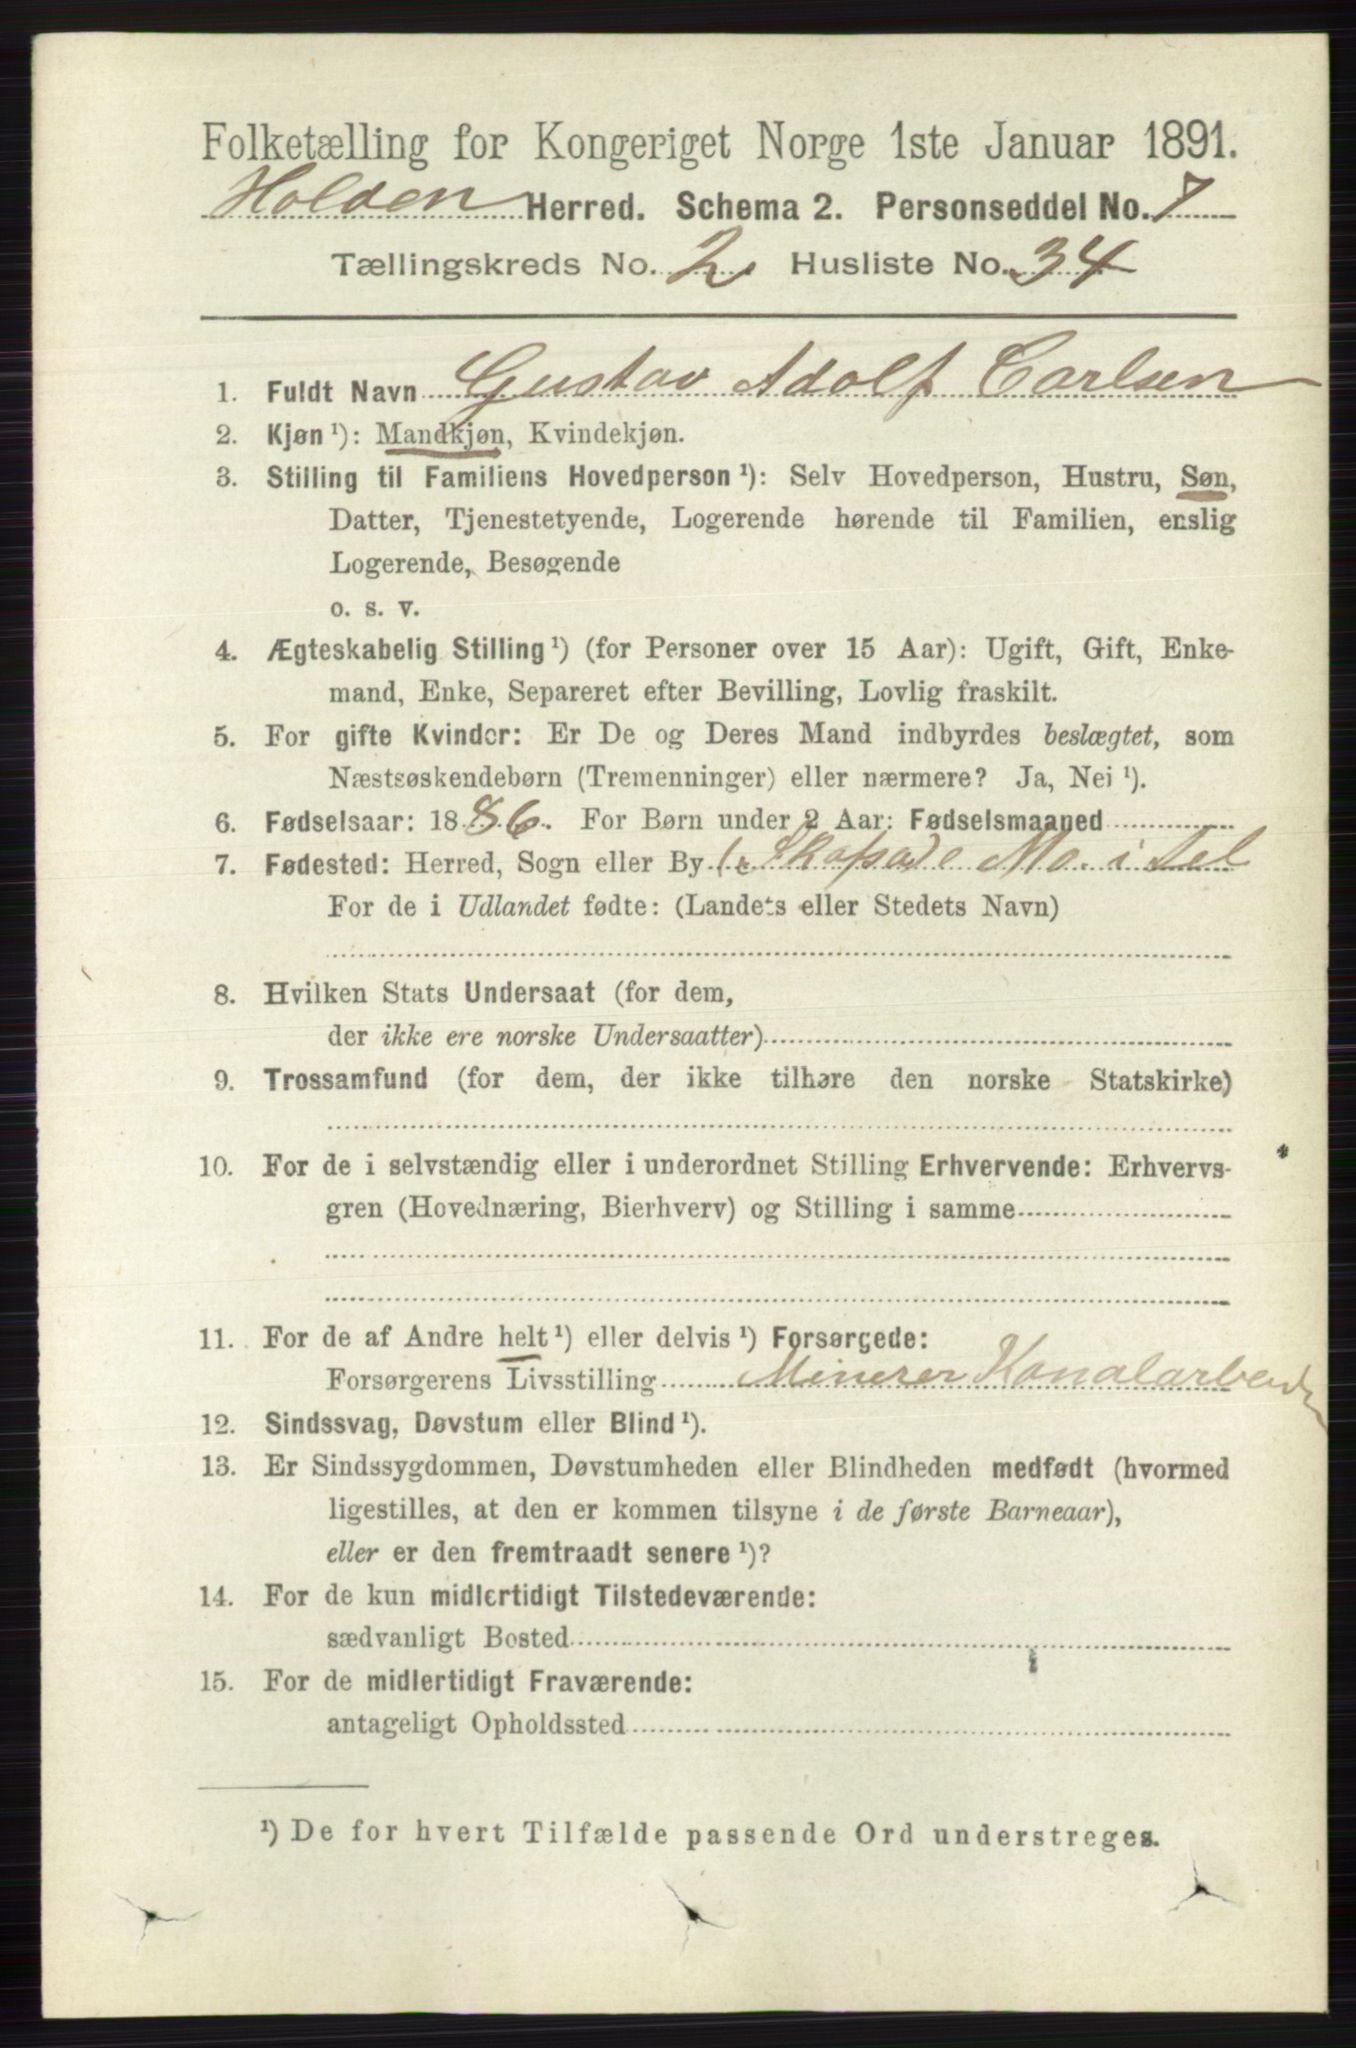 Folketælling for Kongeriget Norge 1ste Januar 1891.
Holden Herred. Schema 2. Personseddel No. 7
Tællingskreds No. 2. Husliste No. 34
1. Fuldt Navn Gustav Adolf Carlsen
2. Kjøn ¹): Mandkjøn, Kvindekjøn.
3. Stilling til Familiens Hovedperson ¹): Selv Hovedperson, Hustru, Søn,
Datter, Tjenestetyende, Logerende hørende til Familien, enslig
Logerende, Besøgende
o. s. v.
4. Ægteskabelig Stilling ¹) (for Personer over 15 Aar): Ugift, Gift, Enke-
mand, Enke, Separeret efter Bevilling, Lovlig fraskilt.
5. For gifte Kvinder: Er De og Deres Mand indbyrdes beslægtet, som
Næstsøskendebørn (Tremenninger) eller nærmere? Ja, Nei ¹).
6. Fødselsaar: 1886. For Børn under 2 Aar: Fødselsmaaned
7. Fødested: Herred, Sogn eller By Mo. i Tel
For de i Udlandet fødte: (Landets eller Stedets Navn)
8. Hvilken Stats Undersaat (for dem,
der ikke ere norske Undersaatter)
9. Trossamfund (for dem, der ikke tilhøre den norske Statskirke)
10. For de i selvstændig eller i underordnet Stilling Erhvervende: Erhvervs-
gren (Hovednæring, Bierhverv) og Stilling i samme
11. For de af Andre helt ¹) eller delvis ¹) Forsørgede:
Forsørgerens Livsstilling Minerer Kanalarbeider
12. Sindssvag, Døvstum eller Blind ¹).
13. Er Sindssygdommen, Døvstumheden eller Blindheden medfødt (hvormed
ligestilles, at den er kommen tilsyne i de første Barneaar),
eller er den fremtraadt senere ¹)?
14. For de kun midlertidigt Tilstedeværende:
sædvanligt Bosted
15. For de midlertidigt Fraværende:
antageligt Opholdssted
¹) De for hvert Tilfælde passende Ord understreges.